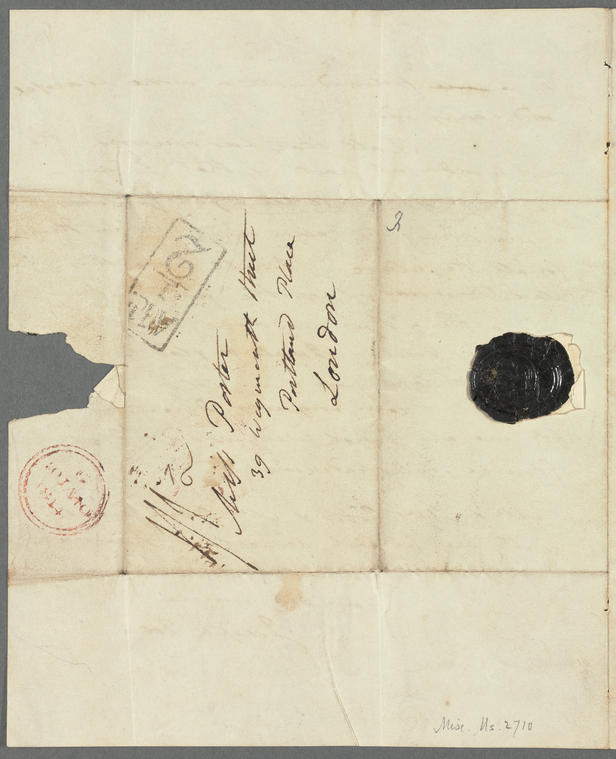 Miss Porter
39 Weymouth Street
Portland Place
London
Misc. Ms. 2710